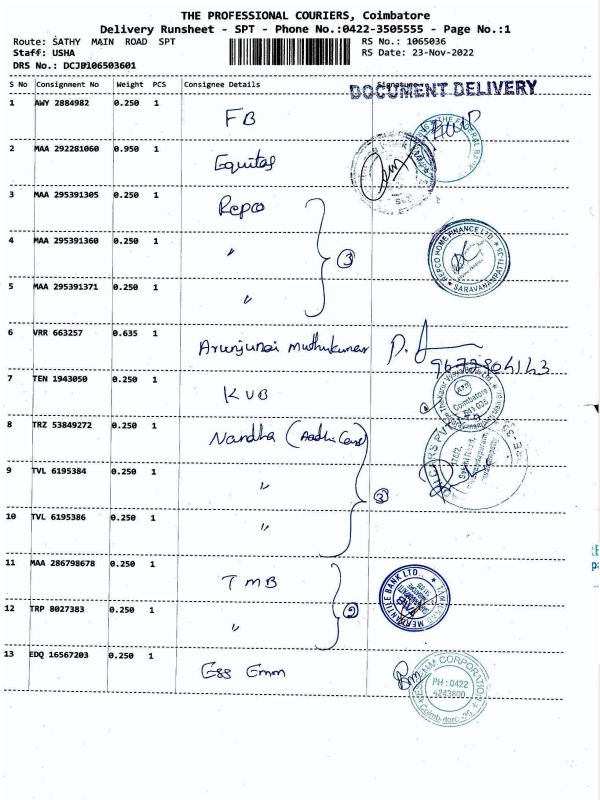 THE PROFESSIONAL COURIERS, Coimbatore
Delivery Runsheet - SPT - Phone No.:0422-3505555 - Page No.:1
Route: SATHY MAIN ROAD SPT RS No.: 1065036
Staff: USHA RS Date: 23-Nov-2022
DRS No.: DCJB106503601
S No Consignment No Weight PCS Consignee Details Signature
DOCUMENT DELIVERY
1 AWY 2884982 0.250 1 FB
2 MAA 292281060 0.950 1 Equitas
3 MAA 295391305 0.250 1 Repco
4 MAA 295391360 0.250 1 " 3
REPCO HOME FINANCE LTD. SARAVANAMPATTI
5 MAA 295391371 0.250 1 "
6 VRR 663257 0.635 1 Arunjunai Muthukumar
7 TEN 1943050 0.250 1 KVB
Coimbatore
8 TRZ 53849272 0.250 1 Nandha
9 TVL 6195384 0.250 1 " 3
10 TVL 6195386 0.250 1 "
11 MAA 286798678 0.250 1 TMB
MERCANTILE BANK LTD.
12 TRP 8027383 0.250 1 " 2
13 EDQ 16567203 0.250 1 Ess Emm
EMM CORPORATION
PH : 0422
4243800